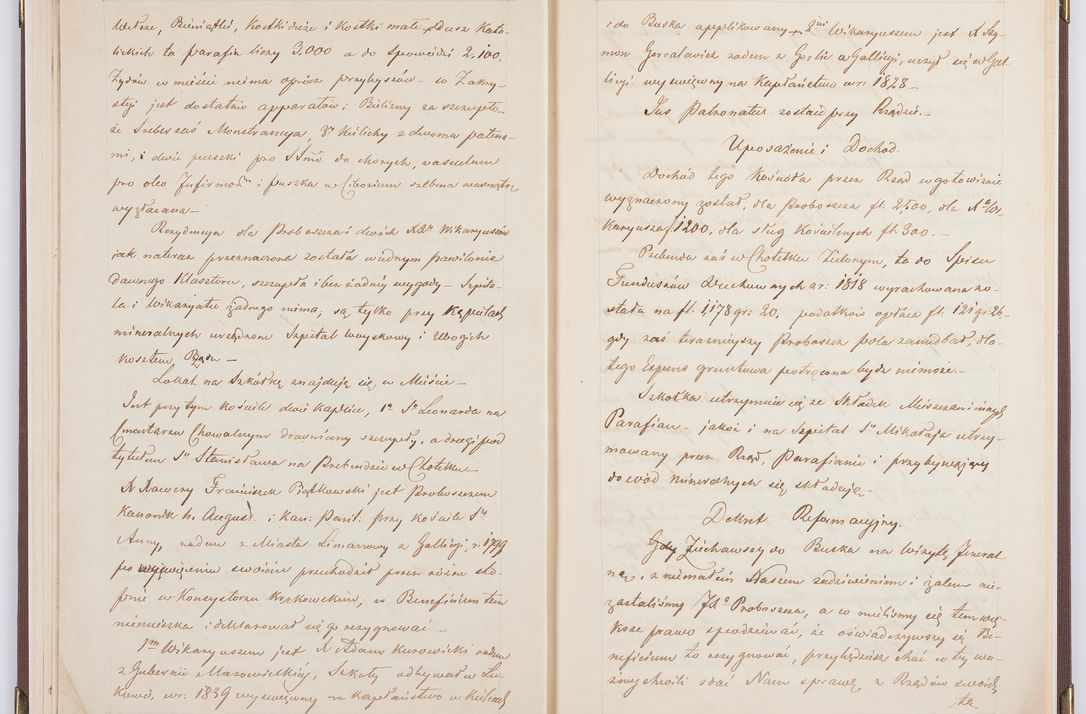 Wełcze, Bieniątki, Kostki duże i Kostki małe, dusz Kato-
lickich ta parafia liczy 3.000 a do spowiedzi 2,100.
Żydów w mieście niema oprócz przybyszów – w Zakry-
styi jest dostatnio apparatów; Bielizny za szczupło –
ze Srebra zaś Monstrancya, 3 Kielichy z dwoma patena-
mi, i dwie puszki pro do chorych, vasculum
pro oleo Infirmor i puszka w Ciborium srebrna wewnątrz
wyzłacana –
Rezydencya dla Proboszcza i dwóch XX Wikaryuszów
jak na teraz przeznaczona została w jednym pawilonie
dawnego Klasztoru, szczupła i bez żadnej wygody – Szpita-
la i Wikaryatu żadnego niema; są tylko przy Kąpielach
mineralnych urządzone Szpital woyskowy i Ubogich
kosztem Rządu –
Lokal na Szkółkę znajduje się w Mieście –
Jest przy tym kościele dwie kaplice, 1a S. Leonarda na
Cmentarzu Chowalnym drewniany szczupły, a drugi pod
tytułem S. Stanisława na Prebendzie w Chotelku –
X Xawery Franciszek Piątkowski jest Proboszczem
Kanonik h. August. i Kan. Penit. przy kościele S.
Anny, rodem z Miasta Limanowy z Gallicyi r. 1799
po wyświęceniu swoiém przechodził przez różne sto-
pnie w Konsystorzu Krakowskim, w Beneficium tem
niemieszka i deklarował się go rezygnować –
1m Wikaryuszem jest X Adam Kurowicki rodem
z Gubernii Mazowieckiéy, Szkoły odbywał w Łu-
kowie, w r: 1839 wyświęcony na kapłaństwo w Kielcach
i do Buska applikowany – 2gim Wikaryuszem jest X Szy-
mon Gorcalowicz rodem z Gorlic w Gallicyi, uczył się w Gal-
licyi wyświęcony na Kapłaństwo w r: 1828 –
Jus Patronatus zostaie przy Rządzie. –
Uposażenie i Dochod.
Dochód tego Kościoła przez Rząd w gotowiznie
wyznaczony został, dla Proboszcza fl: 2,500, dla X Wi-
karyusza fl 1200, dla sług Kościelnych fl: 300. –
Prebenda zaś w Chotelku Zielonym, ta do Spisu
Funduszów Duchownych w r: 1818 wyrachowana zo-
stała na fl: 1,178 gr: 20, podatków opłaca fl: 121 gr: 26 –
gdy zaś teraźnieyszy Proboszcz pola zaniedbał, dla-
tego Expens gruntowa potrącona bydź niemoże. –
Szkółka utrzymuie się ze składek Mieszczan i innych
Parafian – jakoż i na Szpital S. Mikołaja utrzy-
mowany przez Rząd, Parafianie i przybywający
do wód mineralnych się składają.
Dekret Reformacyjny.
Gdy Ziechawszy do Buska na Wizytę Jeneral-
ną, z niemałém Naszem zadziwieniem i żalem nie-
zastaliśmy JX Proboszcza, a co mieliśmy się tem więk-
sze prawo spodziewać, że oświadczywszy się Be-
neficium to rezygnować, przybędziesz choć w tey wa-
żney chwili zdać Nam sprawę z Rządów swoich